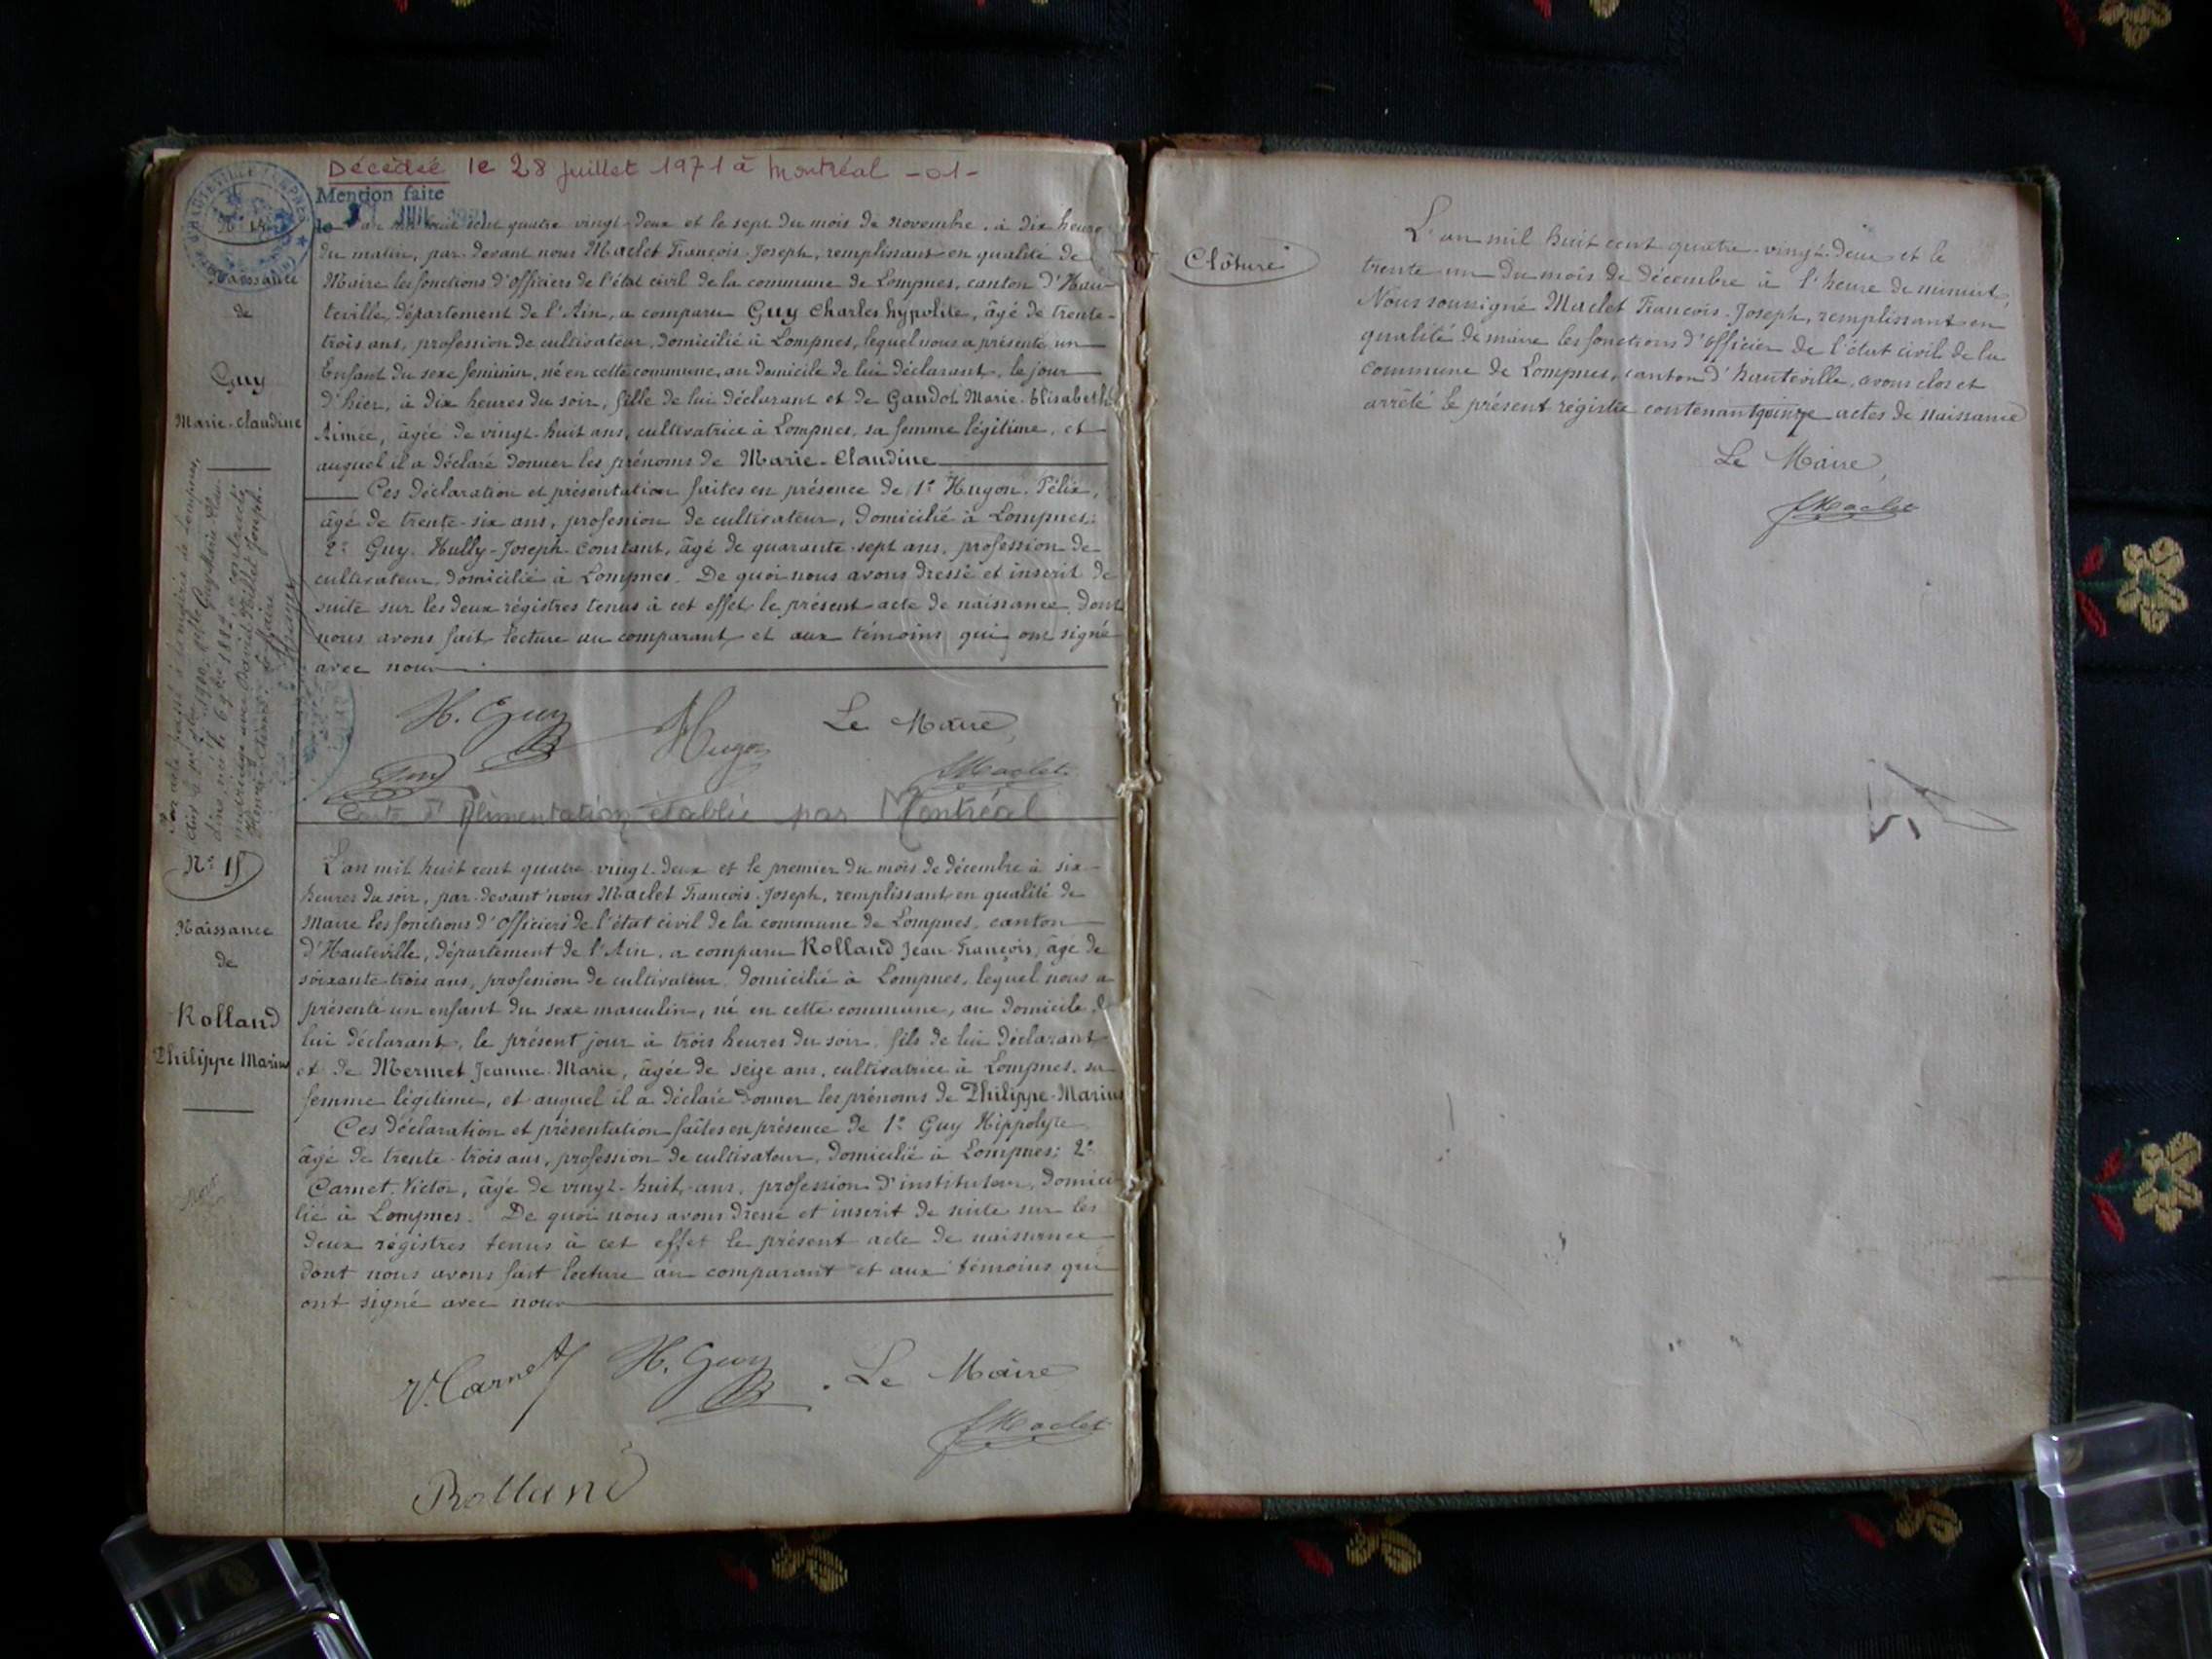 Décédée le 28 juillet 1971 à Montréal -01-
Mention faite
le
N° 14
Naissance
de
Guy
Marie-Claudine
L'an mil huit cent quatre vingt-deux et le sept du mois de novembre, à dix heures
du matin, par devant nous Maclet François-Joseph, remplissant en qualité de
Maire les fonctions d'Officiers de l'état civil de la commune de Lompnes, canton d'Hau-
teville, département de l'Ain, a comparu Guy Charles hypolite, âgé de trente-
trois ans, profession de cultivateur, domicilié à Lompnes, lequel nous a présenté un
Enfant du sexe féminin, né en cette commune, au domicile de lui déclarant, le jour
d'hier, à dix heures du soir, fille de lui déclarant et de Gaudot Marie-Elisabeth
Aimée, âgée de vingt-huit ans, cultivatrice à Lompnes, sa femme légitime, et
auquel il a déclaré donner les prénoms de Marie-Claudine
Ces déclaration et présentation faites en présence de 1° Hugon Félix,
âgé de trente-six ans, profession de cultivateur, domicilié à Lompnes;
2° Guy-Hully-Joseph-Constant, âgé de quarante-sept ans, profession de
cultivateur, domicilié à Lompnes. De quoi nous avons dressé et inscrit de
suite sur les deux régistres tenus à cet effet le présent acte de naissance, dont
nous avons fait lecture au comparant et aux témoins qui ont signé
avec nous
H. Guy Hugon Le Maire,
Guy FMaclet
Carte d'Alimentation établie par Montréal
N° 15
Naissance
de
Rolland
Philippe Marius
L'an mil huit cent quatre vingt-deux et le premier du mois de décembre à six
heures du soir, par-devant nous Maclet François-Joseph, remplissant en qualité de
Maire les fonctions d'Officiers de l'état civil de la commune de Lompnes, canton
d'Hauteville, département de l'Ain, a comparu Rolland Jean-François, âgé de
soixante-trois ans, profession de cultivateur, domicilié à Lompnes, lequel nous a
présenté un enfant du sexe masculin, né en cette commune, au domicile de
lui déclarant, le présent jour à trois heures du soir, fils de lui déclarant
et de Mermet Jeanne-Marie, âgée de seize ans, cultivatrice à Lompnes, sa
femme légitime, et auquel il a déclaré donner les prénoms de Philippe-Marius
Ces déclaration et présentation faites en présence de 1° Guy Hippolyte
âgé de trente-trois ans, profession de cultivateur, domicilié à Lompnes; 2°
Carnet Victor, âgé de vingt-huit ans, profession d'instituteur, domici-
lié à Lompnes. De quoi nous avons dressé et inscrit de suite sur les
deux régistres tenus à cet effet le présent acte de naissance
dont nous avons fait lecture au comparant et aux témoins qui
ont signé avec nous
V. Carnet H. Guy Le Maire
FMaclet
Rolland
Clôture
L'an mil huit cent quatre-vingt-deux et le
trente un du mois de décembre à l'heure de minuit,
Nous soussigné Maclet François-Joseph, remplissant en
qualité de maire les fonctions d'Officier de l'état civil de la
commune de Lompnes, canton d'hauteville, avons clos et
arrêté le présent régistre contenant quinze actes de naissance
Le Maire,
FMaclet